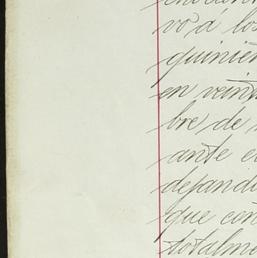 vo á los
quinien
en veint
bre de
ante e
dejand
que con
totalme